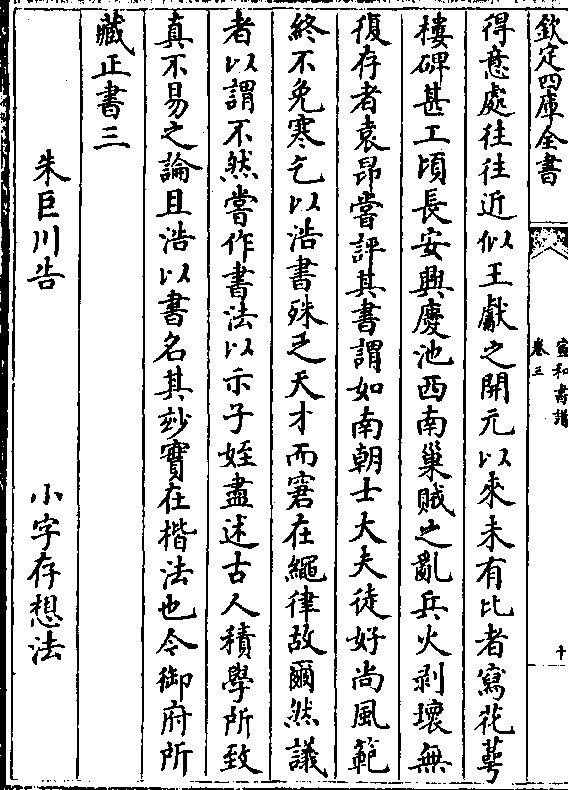 欽定四庫全書
宣和書譜
卷三
十
得意處往往近似王獻之開元以來未有比者寫花萼
樓碑甚工頃長安興慶池西南巢賊之亂兵火剥壞無
復存者袁昂嘗評其書謂如南朝士大夫徒好尚風範
終不免寒乞以浩書殊乏天才而窘在繩律故爾然議
者以謂不然嘗作書法以示子姪盡述古人積學所致
真不易之論且浩以書名其妙實在楷法也今御府所
藏正書三
朱巨川告
小字存想法